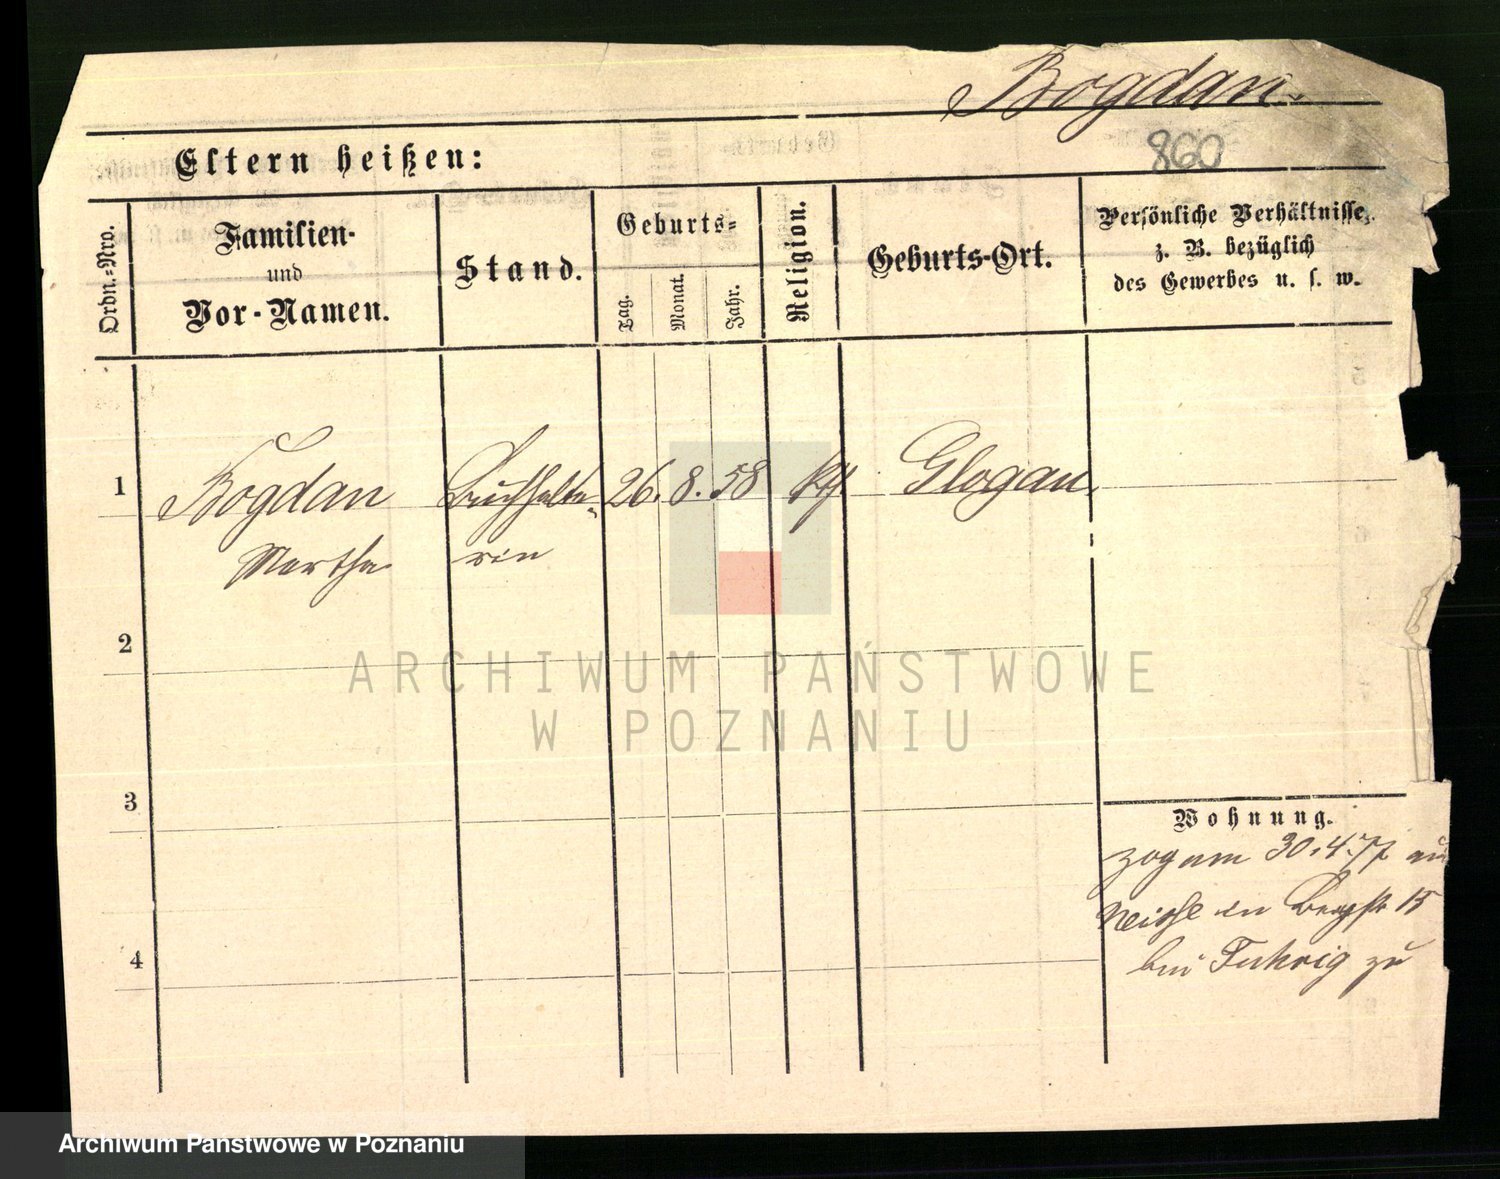 Bogdan.
860
Eltern heißen:
Ordn.-Nro.
Familien-
und
Vor-Namen.
Stand.
Geburts-
Tag.
Monat.
Jahr.
Religion.
Geburts-Ort.
Persönliche Verhältnisse,
z. B. bezüglich
des Gewerbes u. s. w.
1
Bogdan Buchhalte- 26. 8. 58 Glogau
Martha rin
2
3
4
Wohnung.
zog am 30.4.77 aus
Neisse in Bergstr 15
bei zu
ARCHIWUM PAŃSTWOWE
W POZNANIU
Archiwum Państwowe w Poznaniu